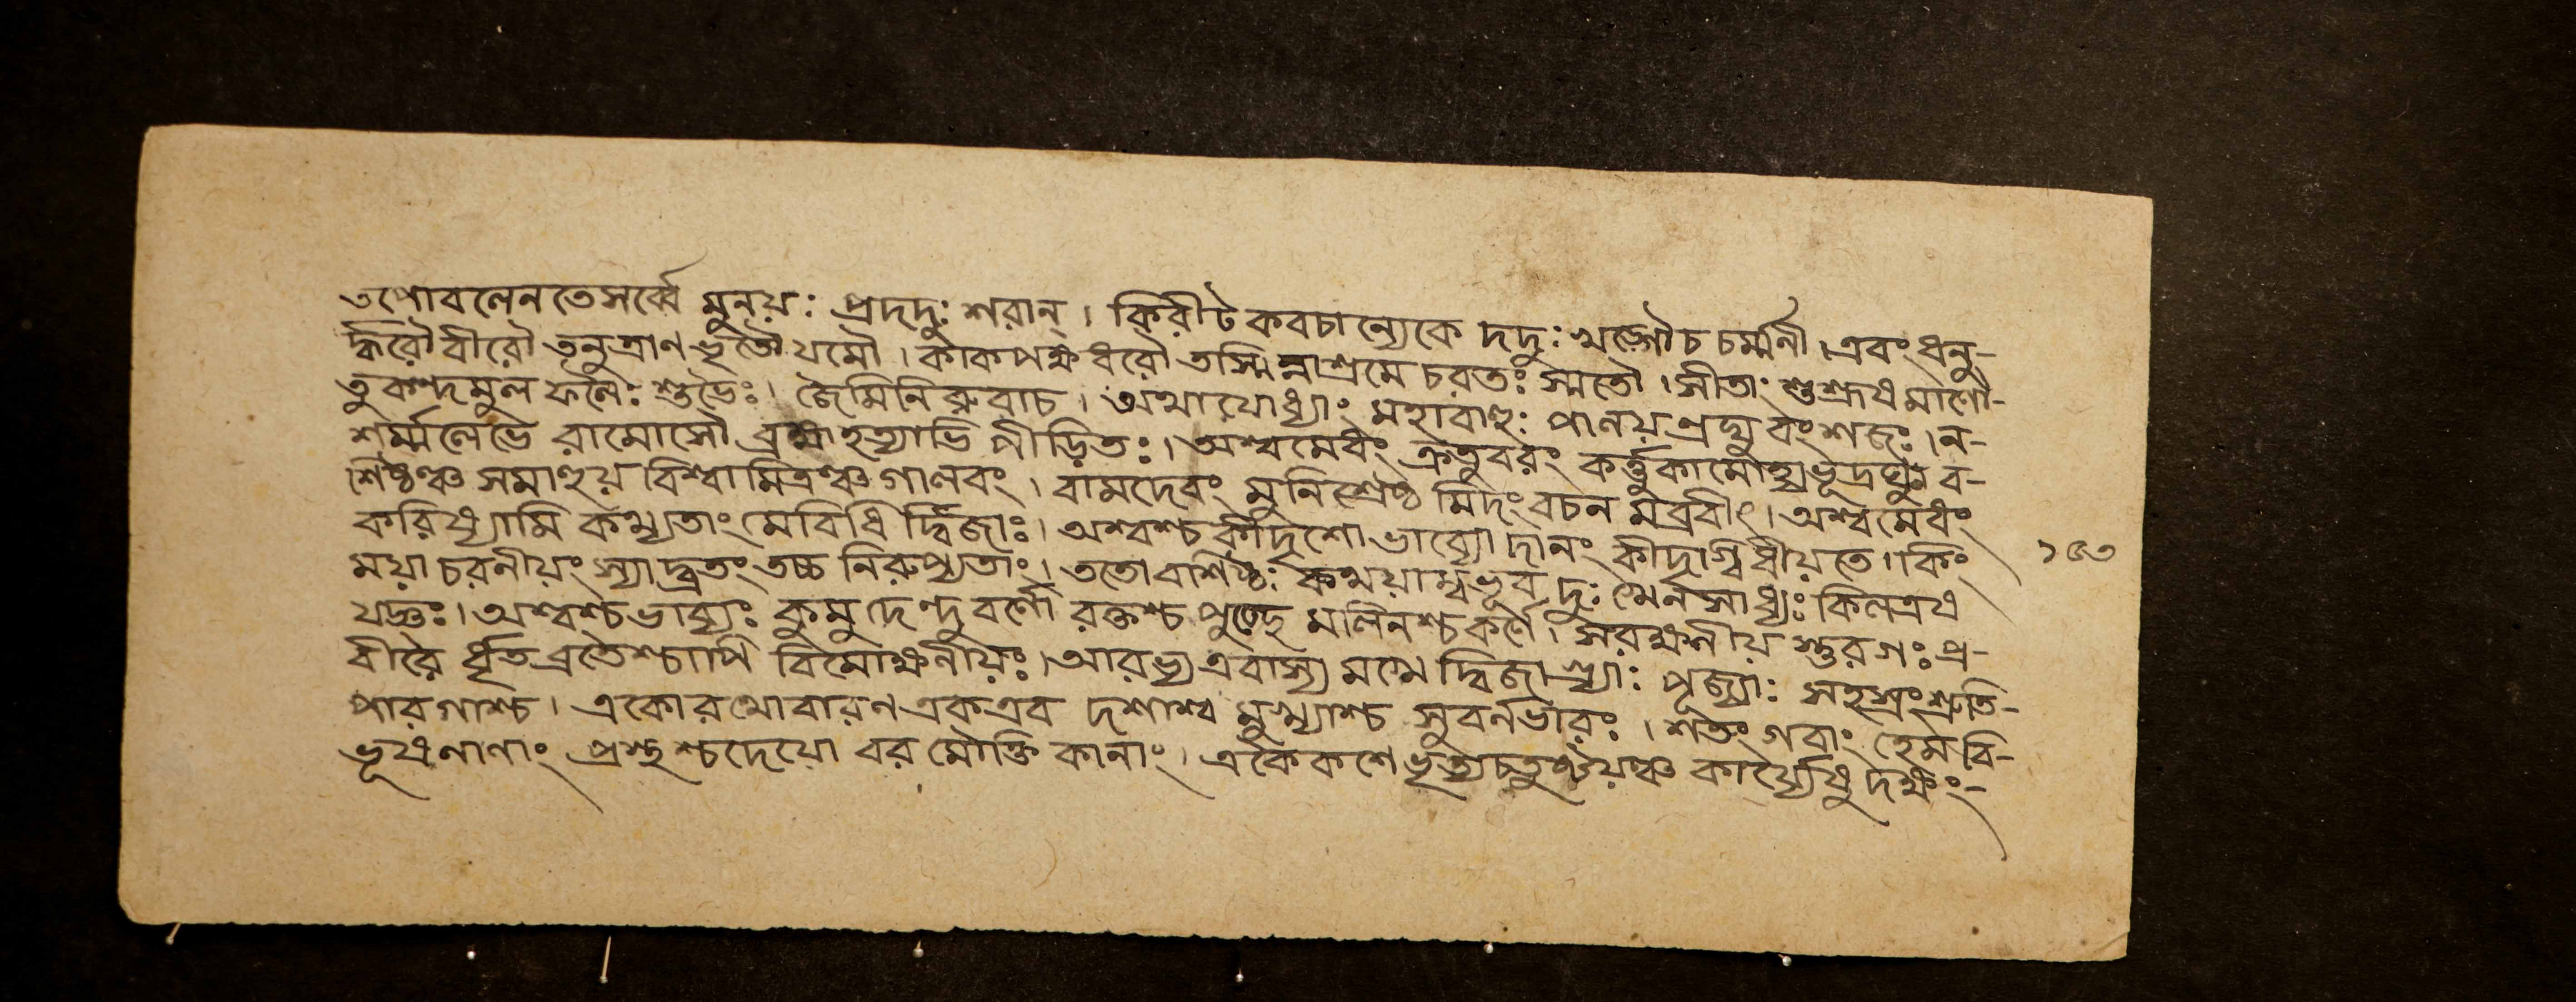 তপোবলেনতেসর্ব্বে মুনয়ঃ প্রদদুঃ শরান্। কিরীট কবচান্যেকে দদুঃ খড়্গৌচ চর্ম্মনী। এবং ধনু-
র্দ্ধরৌবীরৌ তনুত্রাণ ভৃতৌ যমৌ। কাকপক্ষ ধরৌ তস্মিন্নাশ্রমে চরতঃ স্মতৌ। সীতাং শুশ্রূষ মাণৌ-
তু কন্দমুল ফলৈঃ শুভৈঃ। জৈমিনি রুবাচ। অথাযোধ্যাং মহাবাহুঃ পালয় ন্রঘু বংশজঃ। ন-
শর্ম্মলেভে রামোসৌ ব্রহ্মহত্যাভি পীড়িতঃ। অশ্বমেধং ক্রতুবরং কর্ত্তুকামোহ্যভূদ্রঘুঃ ব-
শিষ্ঠঞ্চ সমাহুয় বিশ্বামিত্রঞ্চ গালবং। বামদেবং মুনিশ্রেষ্ঠ মিদং বচন মব্রবীৎ। অশ্বমেধং
করিষ্যামি কথ্যতাং মেবিধি র্দ্বিজাঃ। অশ্বশ্চ কীদৃশো ভাব্যো দানং কীদৃগ্বিধীয়তে। কিং
ময়া চরনীয়ং স্যাদ্ব্রতং তচ্চ নিরুপ্যতাং। ততো বাশিষ্ঠঃ কথয়াম্বভূব দুঃখেন সাধ্যঃ কিলএষ
যজ্ঞঃ। অশ্বশ্চ ভাব্যঃ কুমুদেন্দুবর্ণো রক্তশ্চ পুচ্ছে মলিনশ্চ কর্ণে। সরক্ষণীয় স্তুরগঃ প্র-
বীরৈ র্ধৃত ব্রতৈশ্চাপি বিমোক্ষনীয়ঃ। আরভ্য এবাস্য মখে দ্বিজাগ্র্যাঃ পূজ্যাঃ সহস্রং শ্রুতি-
পারগাশ্চ। একোরথোবারণ একএব দশাশ্ব মুখ্যাশ্চ সুবর্নভারঃ। শতং গবাং হেম বি-
ভূষণানাং প্রস্থশ্চদেয়ো বর মৌক্তি কানাং। একৈকশো ভৃত্যচতুষ্টয়ঞ্চ কার্য্যেষু দক্ষং-
১৫৩